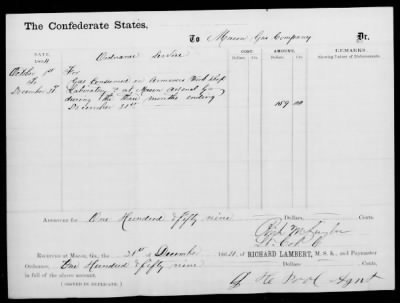 The Confederate States,
To Macon Gas Company Dr.
DATE. COST. AMOUNT. REMARKS
1864 Ordnance Service Dollars. Cts. Dollars. Cts. Showing Nature of Disbursements.
October 1st For
to Gas Consumed in Armorers Work shops
December 31st Laboratory &c at Macon Arsenal Ga
during the three months ending
December 31st 159 00
AMOUNTING TO One Hundred & fifty nine Dollars. Cents.
Lt. Col.
RECEIVED AT MACON, GA., the 31st December 1864, of RICHARD LAMBERT, M. S. K., and Paymaster
Ordnance, One Hundred & fifty nine Dollars Cents.
in full of the above account.
(SIGNED IN DUPLICATE.) Agent